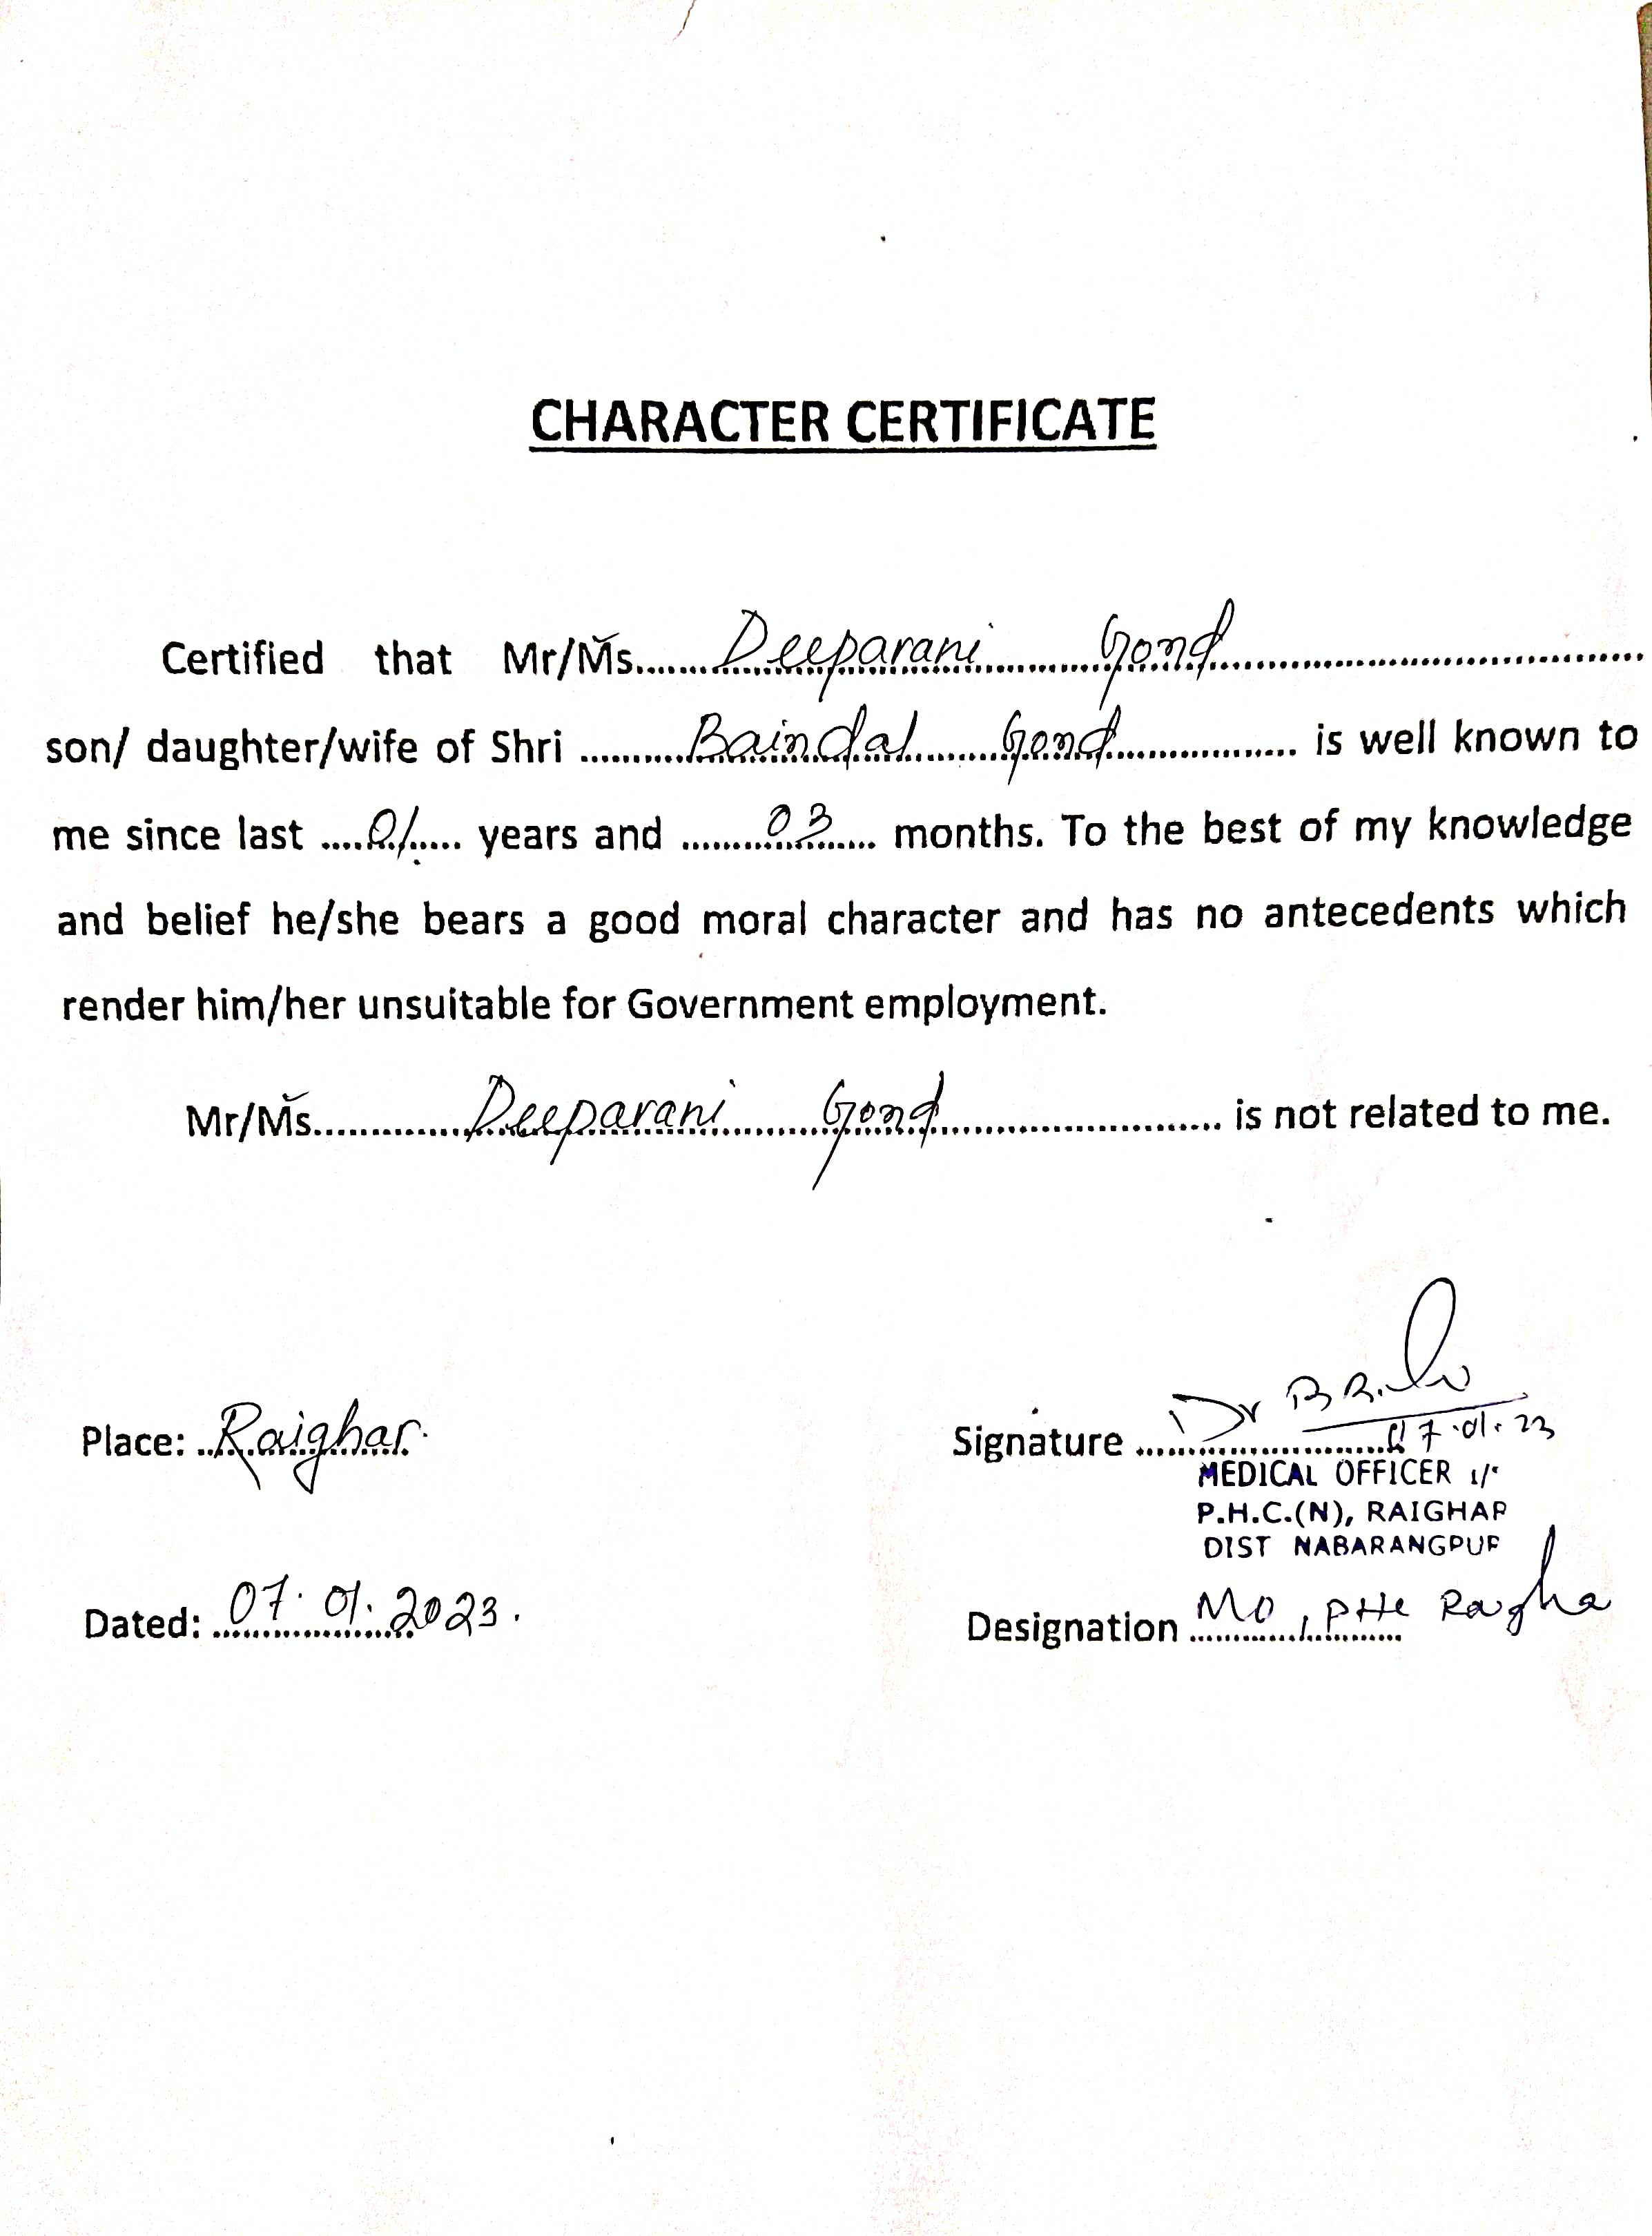 CHARACTER CERTIFICATE
Certified that Mr/Ms.......Deeparani Gond.......
son/ daughter/wife of Shri ..........Baindal Gond.......... is well known to
me since last ....01..... years and ..........03.... months. To the best of my knowledge
and belief he/she bears a good moral character and has no antecedents which
render him/her unsuitable for Government employment.
Mr/Ms.............Deeparani Gond............. is not related to me.
Place: Raighar.
Signature Dr
07.01.23
MEDICAL OFFICER I/
P.H.C.(N), RAIGHAR
DIST NABARANGPUR
Dated: 07.01.2023.
Designation MO, PHC